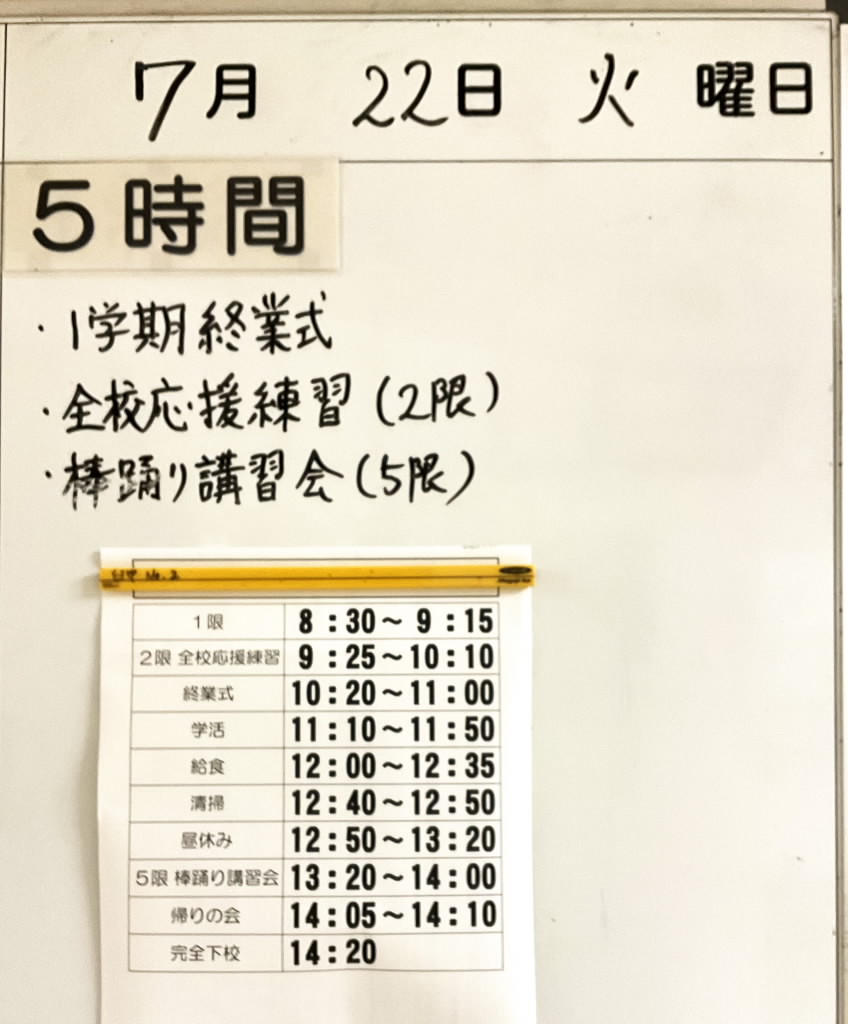 7月 22日 火 曜日
5時間
・1学期終業式
・全校応援練習(2限)
・棒踊り講習会(5限)
No.2
1限 8:30〜9:15
2限 全校応援練習 9:25〜10:10
終業式 10:20〜11:00
学活 11:10〜11:50
給食 12:00〜12:35
清掃 12:40〜12:50
昼休み 12:50〜13:20
5限 棒踊り講習会 13:20〜14:00
帰りの会 14:05〜14:10
完全下校 14:20